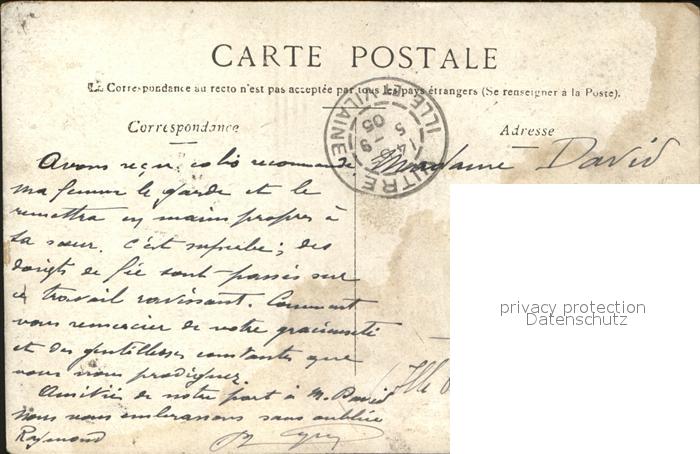 CARTE POSTALE
La Correspondance au recto n'est pas acceptée par tous les pays étrangers (Se renseigner à la Poste).
Correspondance
Adresse
VITRE
ILLE-ET-VILAINE
14 - 5
05
Madame David
Avons reçu colis recommandé.
ma femme le garde et le
remettra en mains propres à
sa sœur. c'est superbe; des
doigts de fée sont passés sur
ce travail ravissant. Comment
vous remercier de votre gracieuseté
et des gentillesses constantes que
vous nous prodiguez.
Amitiés de notre part à M. David
Nous vous embrassons sans oublier
Raymond
Ille
privacy protection
Datenschutz